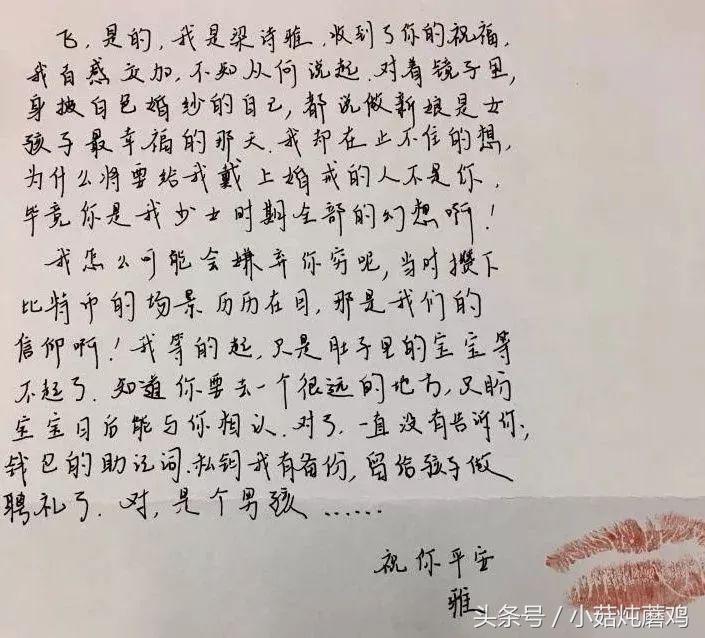 飞,是的,我是梁诗雅,收到了你的祝福,
我百感交加,不知从何说起.对着镜子里,
身披白色婚纱的自己,都说做新娘是女
孩子最幸福的那天.我却在止不住的想,
为什么将要给我戴上婚戒的人不是你,
毕竟你是我少女时期全部的幻想啊!
我怎么可能会嫌弃你穷呢,当时攒下
比特币的场景历历在目,那是我们的
信仰啊!我等的起,只是肚子里的宝宝等
不起了.知道你要去一个很远的地方,只盼
宝宝日后能与你相认.对了,一直没有告诉你,
钱包的助记词、私钥我有备份,留给孩子做
聘礼了.对,是个男孩……
祝你平安
雅
头条号/小菇炖蘑鸡